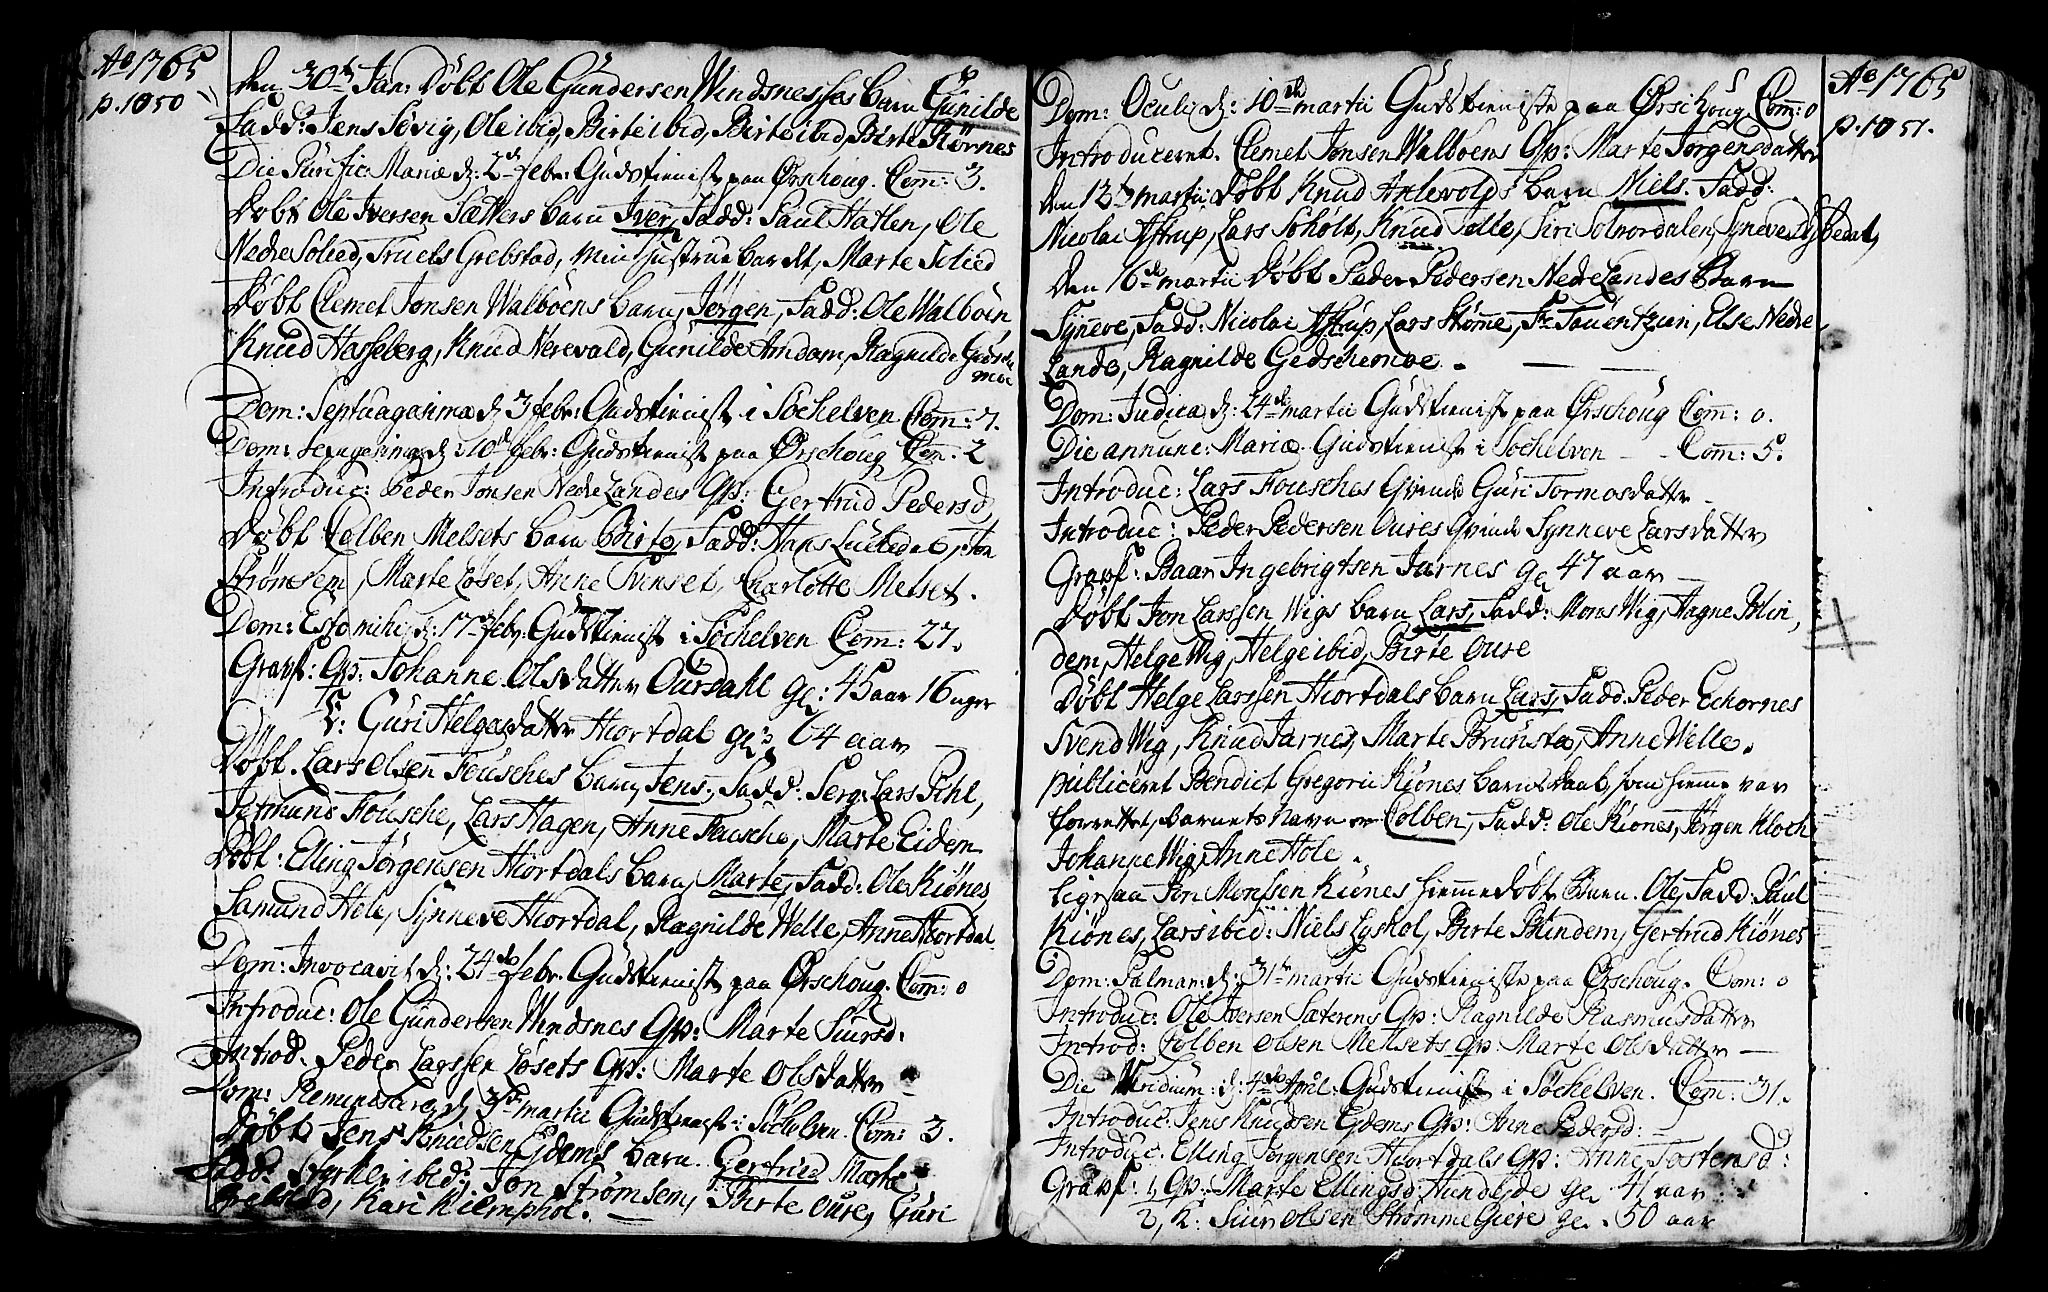 Ao 1765
p. 1050
Den 30th Jan: Døbt Ole Gundersen Windsnes Barn Gunilde
Fadd: Jens Søvig, Ole ibid, Birte ibid, Birte ibid, Birte Kørnes
Die Purific: Mariæ d: 2d febr: Gudstienist paa Ørschoug. Com: 3.
Døbt Ole Iversen Sætters barn Iver, Fadd: Paul Hatlen, Ole
Nedre Solied, Truels Grebstad, min Hustrue bar det, Marte Solied
Døbt Clemet Jonsen Walbøens barn, Jørgen, Fadd: Ole Walbøen,
Knud Hasseberg, Knud Nerevald, Gunilde Amdam, Ragnilde
Dom: Septuagesima d 3 febr: Gudstienist i Søchelven Com: 7.
Dom: Sexagesima d: 10d febr: Gudstienist paa Ørschoug Com. 2
Introduc: Peder Jonsen Nedre Landes Qv: Gertrud Pedersd
Døbt Colben Melsets barn Birte, Fadd: Hans Luttedal, Jon
Strømsem, Marte Løset, Anne Tvinset, Charlotte Melset.
Dom: Estomihi, d: 17d febr: Gudstienist i Søchelven Com: 27.
Gravf: Qv: Johanne Olsdatter Oursdahl gl: 45 aar 16 uger
K: Guri Helgesdatter Hiortdal gl: 64 aar
Døbt. Lars Olsen Fousches barn, Jens, Fadd: Serg: Lars Pihl,
Fousche, Lars Hagen, Anne Fousche, Marte Eidem
Døbt: Elling Jørgensen Hiortdals barn, Marte, Fadd: Ole Kiønes,
Samund Hole, Synneve Hiortdal, Ragnilde Welle, Anne Hiortdal
Dom: Invocavit d: 24de febr: Gudstienist paa Ørschoug. Com: 0
Introduc: Ole Gundersen Windsnes Qv: Marte Siursd:
Introd. Peder Larssen Løsets Qv: Marte Olsdatter
Dom: Reminiscere d 3de martii Gudstienist i Søchelven. Com: 3.
Døbt Jens Knudsen Eidems barn. Gertrud Marte
Fadd: ibid, Jon Strømsem, Birte Oure, Guri
Grebstad, Kari Kiemphol.
Ao 1765
p. 1051.
Dom: Oculi d: 10de martii Gudstieniste paa Ørschoug. Com: 0
Introduceret. Clemet Jonsen Walboens Qv: Marte Jørgensdatter
Den 12th martii Døbt Knud Anlevolds barn Niels. Fadd:
Nicolai Astrup, Lars Soholt, Knud Tolle, Siri Solnordalen, Syneve
Den 16de martii Døbt Peder Pedersen Nedre Landes Barn
Synneve, Fadd: Nicolai Astrup, Lars Strømme, Fr Fauentzun, Else Nedre
Lande, Ragnilde Gedschemoe.
Dom: Judica d: 24de martii Gudstienist paa Ørschoug Com: 0.
Die annunc: Mariæ Gudstienist i Søchelven Com: 5.
Introduc: Lars Fousches Qvinde Guri Tormosdatter
Introduc: Peder Pedersen Oures Qvinde Synneve Larsdatter
Gravf: Baar Ingebrigtsen Jarnes gl 47 aar
Døbt Jon Larssen Wigs barn Lars, Fadd: Mons Wig, Hagne Blin,
dem, Helge Wig, Helge ibid, Birte Oure
Døbt Helge Larssen Hiortdals barn Lars, Fadd. Peder Echornes
Svend Wig, Knud Jarnes, Marte Brunstæ, Anne Welle.
publiceret Bendict Gregorii Kiønes barnedaab, som hiemme var
forrettet, barnets navn er Colben, Fadd: Ole Kiønes, Jørgen Kloch
Johanne Wig, Anne Hole.
Ligesaa Jon Monssen Kiønes hiemmedøbte Barn. Ole, Fadd: Paul
Kiønes, Lars ibid: Niels Lyshol, Birte Blindem, Gertrud Kiønes
Dom: Palmar: d: 31te martii Gudstieniste paa Ørschoug. Com: 0
Introduc: Ole Iversen Sæterens Qv: Ragnilde Rasmusdatter
Introd: Colben Olsen Melsets Qv: Marte Olsdatter
Die Viridium: d: 4de April: Gudstienist i Søchelven. Com: 31.
Introduc: Jens Knudsen Ejdems Qv: Anne Pedersd:
Introduc: Elling Jørgensen Hiortdals Qv: Anne Tostensd:
Gravf: 1, Qv: Marte Ellingsd Hundejde gl 41 aar
2, K: Siur Olsen Strømmegiere gl. 50 aar